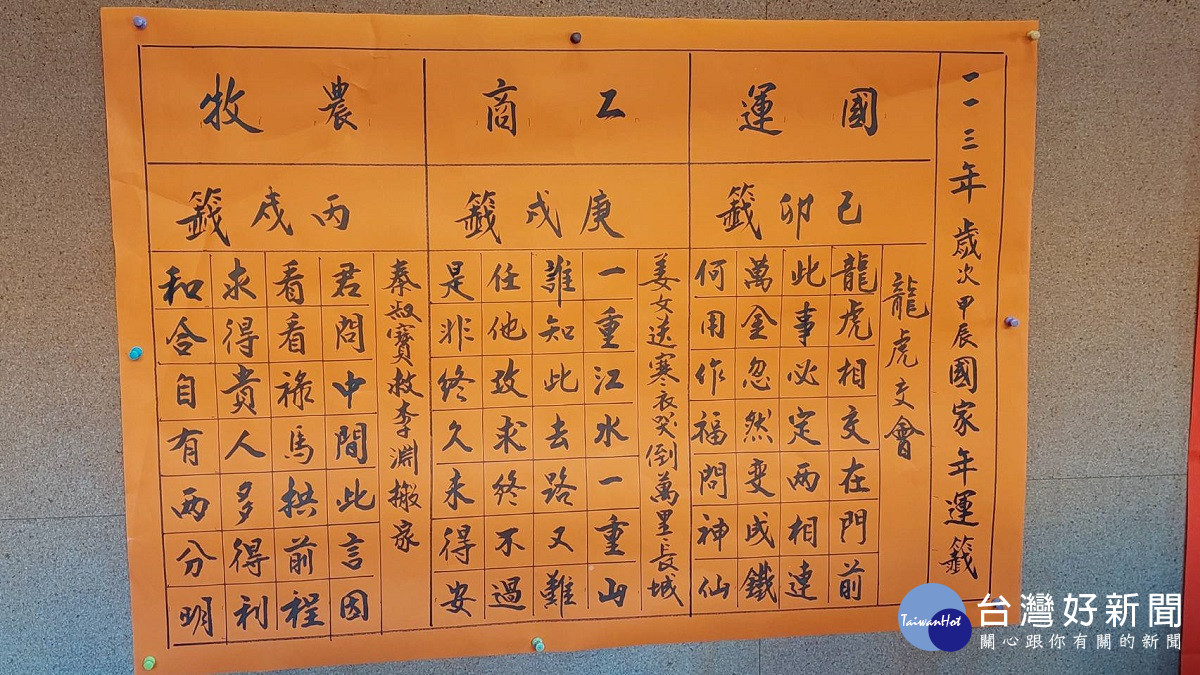 一一三年歲次甲辰國家年運籤
國運
己卯籤
龍虎交會
龍虎相交在門前
此事必定兩相連
萬金忽然变成鐵
何用作福問神仙
工商
庚戌籤
姜女送寒衣哭倒萬里長城
一重江水一重山
誰知此去路又難
任他改求終不過
是非終久未得安
農牧
丙戌籤
秦叔寶救李淵搬家
君問中間此言因
看看祿馬拱前程
求得貴人多得利
和合自有兩分明
TaiwanHot
台灣好新聞
關心跟你有關的新聞